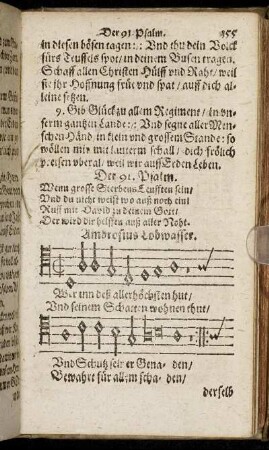 Der 91. Psalm. 155
in diesen bösen tagen :,: Vnd thu dein Volck
fürs Teuffels spot/ in deinem Busen tragen.
Schaff allen Christen Hülff vnd Raht/ weil
sie ihr Hoffnung früe vnd spat/ auff dich al-
leine setzen.
9. Gib Glück zu allem Regiment/ in vn-
serm gantzen Lande :,: Vnd segne aller Men-
schen Händ/ in klein vnd grossem Stande: so
wöllen mir mit lauterm schall/ dich frölich
preisen vberal/ weil wir auff Erden Leben.
Der 91. Psalm.
Wenn grosse Sterbens Leufften sein/
Vnd du nicht weißt wo auß noch ein/
Ruff mit David zu deinem Gott/
Der wird dir helffen auß aller Noht.
Ambrosius Lobwasser.
Wer inn deß allerhöchsten hut/
Vnd seinem Schatten wohnen thut/
Vnd Schutz seir er Gena- den/
Bewahrt für allem scha- den/
derselb